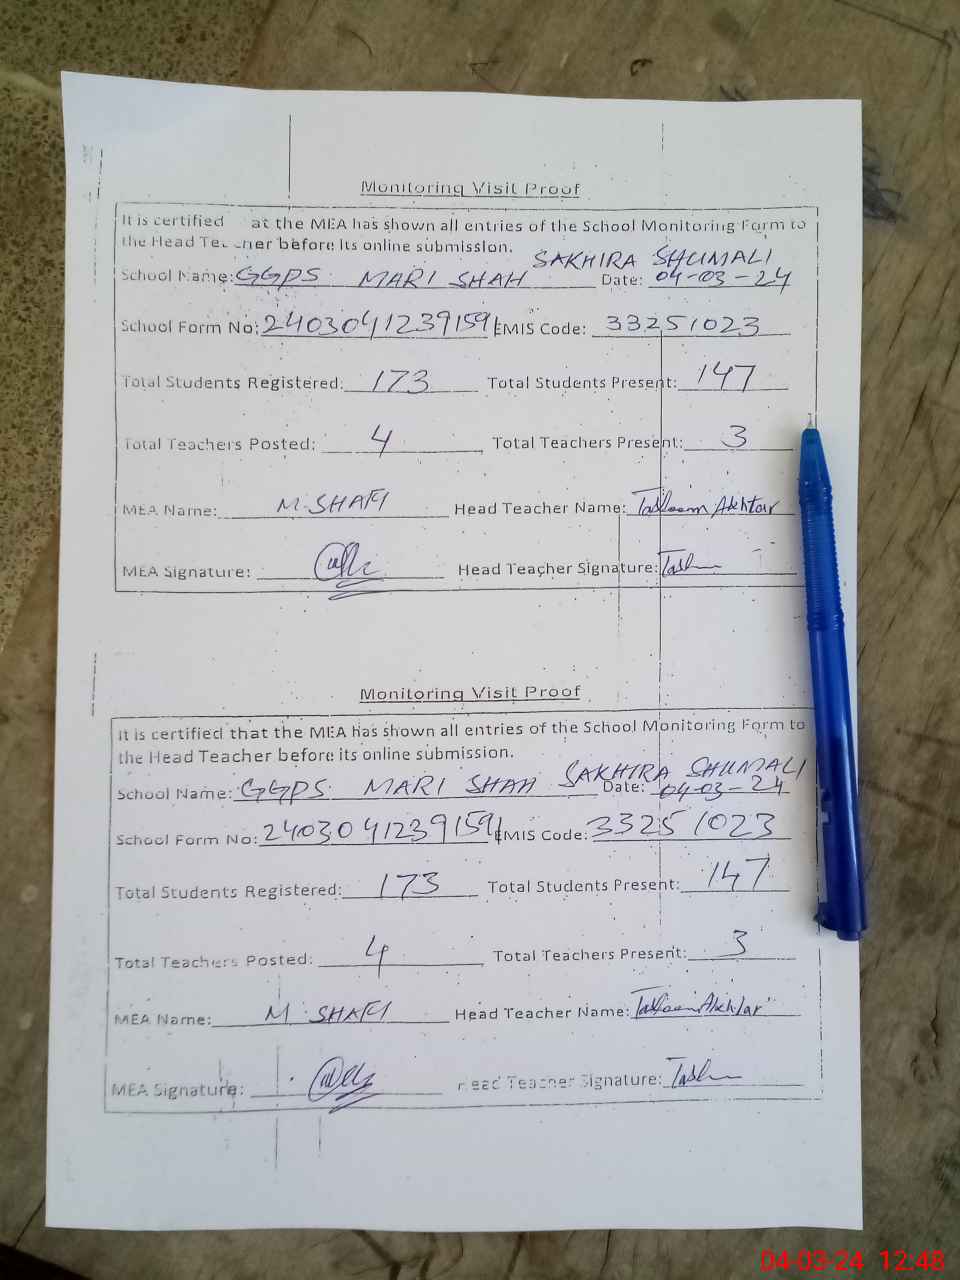 Monitoring Visit Proof
It is certified at the MEA has shown all entries of the School Monitoring Form to
the Head Teacher before its online submission.
SAKHIRA SHUMALI
School Name: GGPS MARI SHAH Date: 04-03-24
School Form No: 2403041239159 EMIS Code: 33251023
Total Students Registered: 173 Total Students Present: 147
Total Teachers Posted: 4 Total Teachers Present: 3
MEA Name: M. SHAFI Head Teacher Name: Akhtar
MEA Signature: Head Teacher Signature:
Monitoring Visit Proof
It is certified that the MEA has shown all entries of the School Monitoring Form to
the Head Teacher before its online submission.
SAKHIRA SHUMALI
School Name: GGPS MARI SHAH Date: 04-03-24
School Form No: 2403041239159 EMIS Code: 33251023
Total Students Registered: 173 Total Students Present: 147
Total Teachers Posted: 4 Total Teachers Present: 3
MEA Name: M. SHAFI Head Teacher Name: Akhtar
MEA Signature: Head Teacher Signature:
04-03-24 12:48